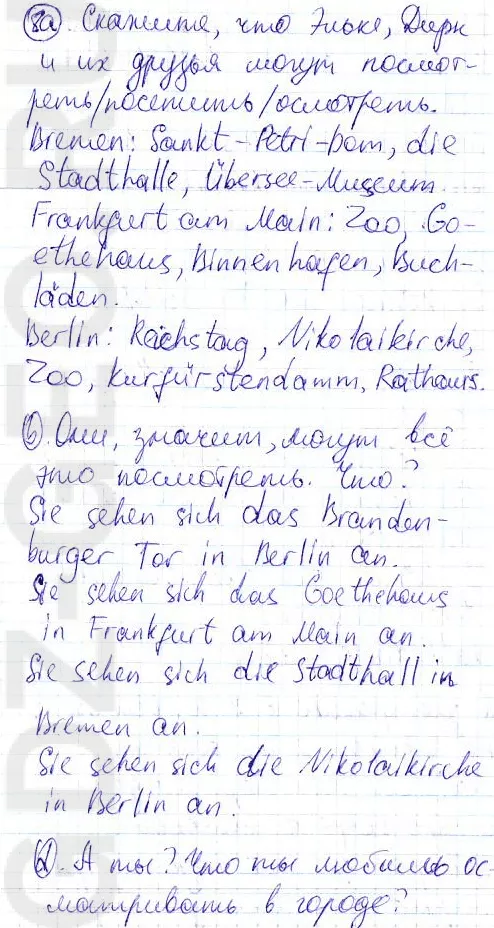 8a. Скажите, что Эльке, Дирк
и их друзья могут посмот-
реть/посетить/осмотреть.
Bremen: Sankt-Petri-Dom, die
Stadthalle, Übersee-Museum.
Frankfurt am Main: Zoo, Go-
ethehaus, Binnenhafen, Buch-
läden.
Berlin: Reichstag, Nikolaikirche,
Zoo, Kurfürstendamm, Rathaus.
b. Они, значит, могут всё
это посмотреть. Что?
Sie sehen sich das Branden-
burger Tor in Berlin an.
Sie sehen sich das Goethehaus
in Frankfurt am Main an.
Sie sehen sich die Stadthall in
Bremen an.
Sie sehen sich die Nikolaikirche
in Berlin an.
d. А ты? Что ты любишь ос-
матривать в городе?
GDZ-GEO.RU